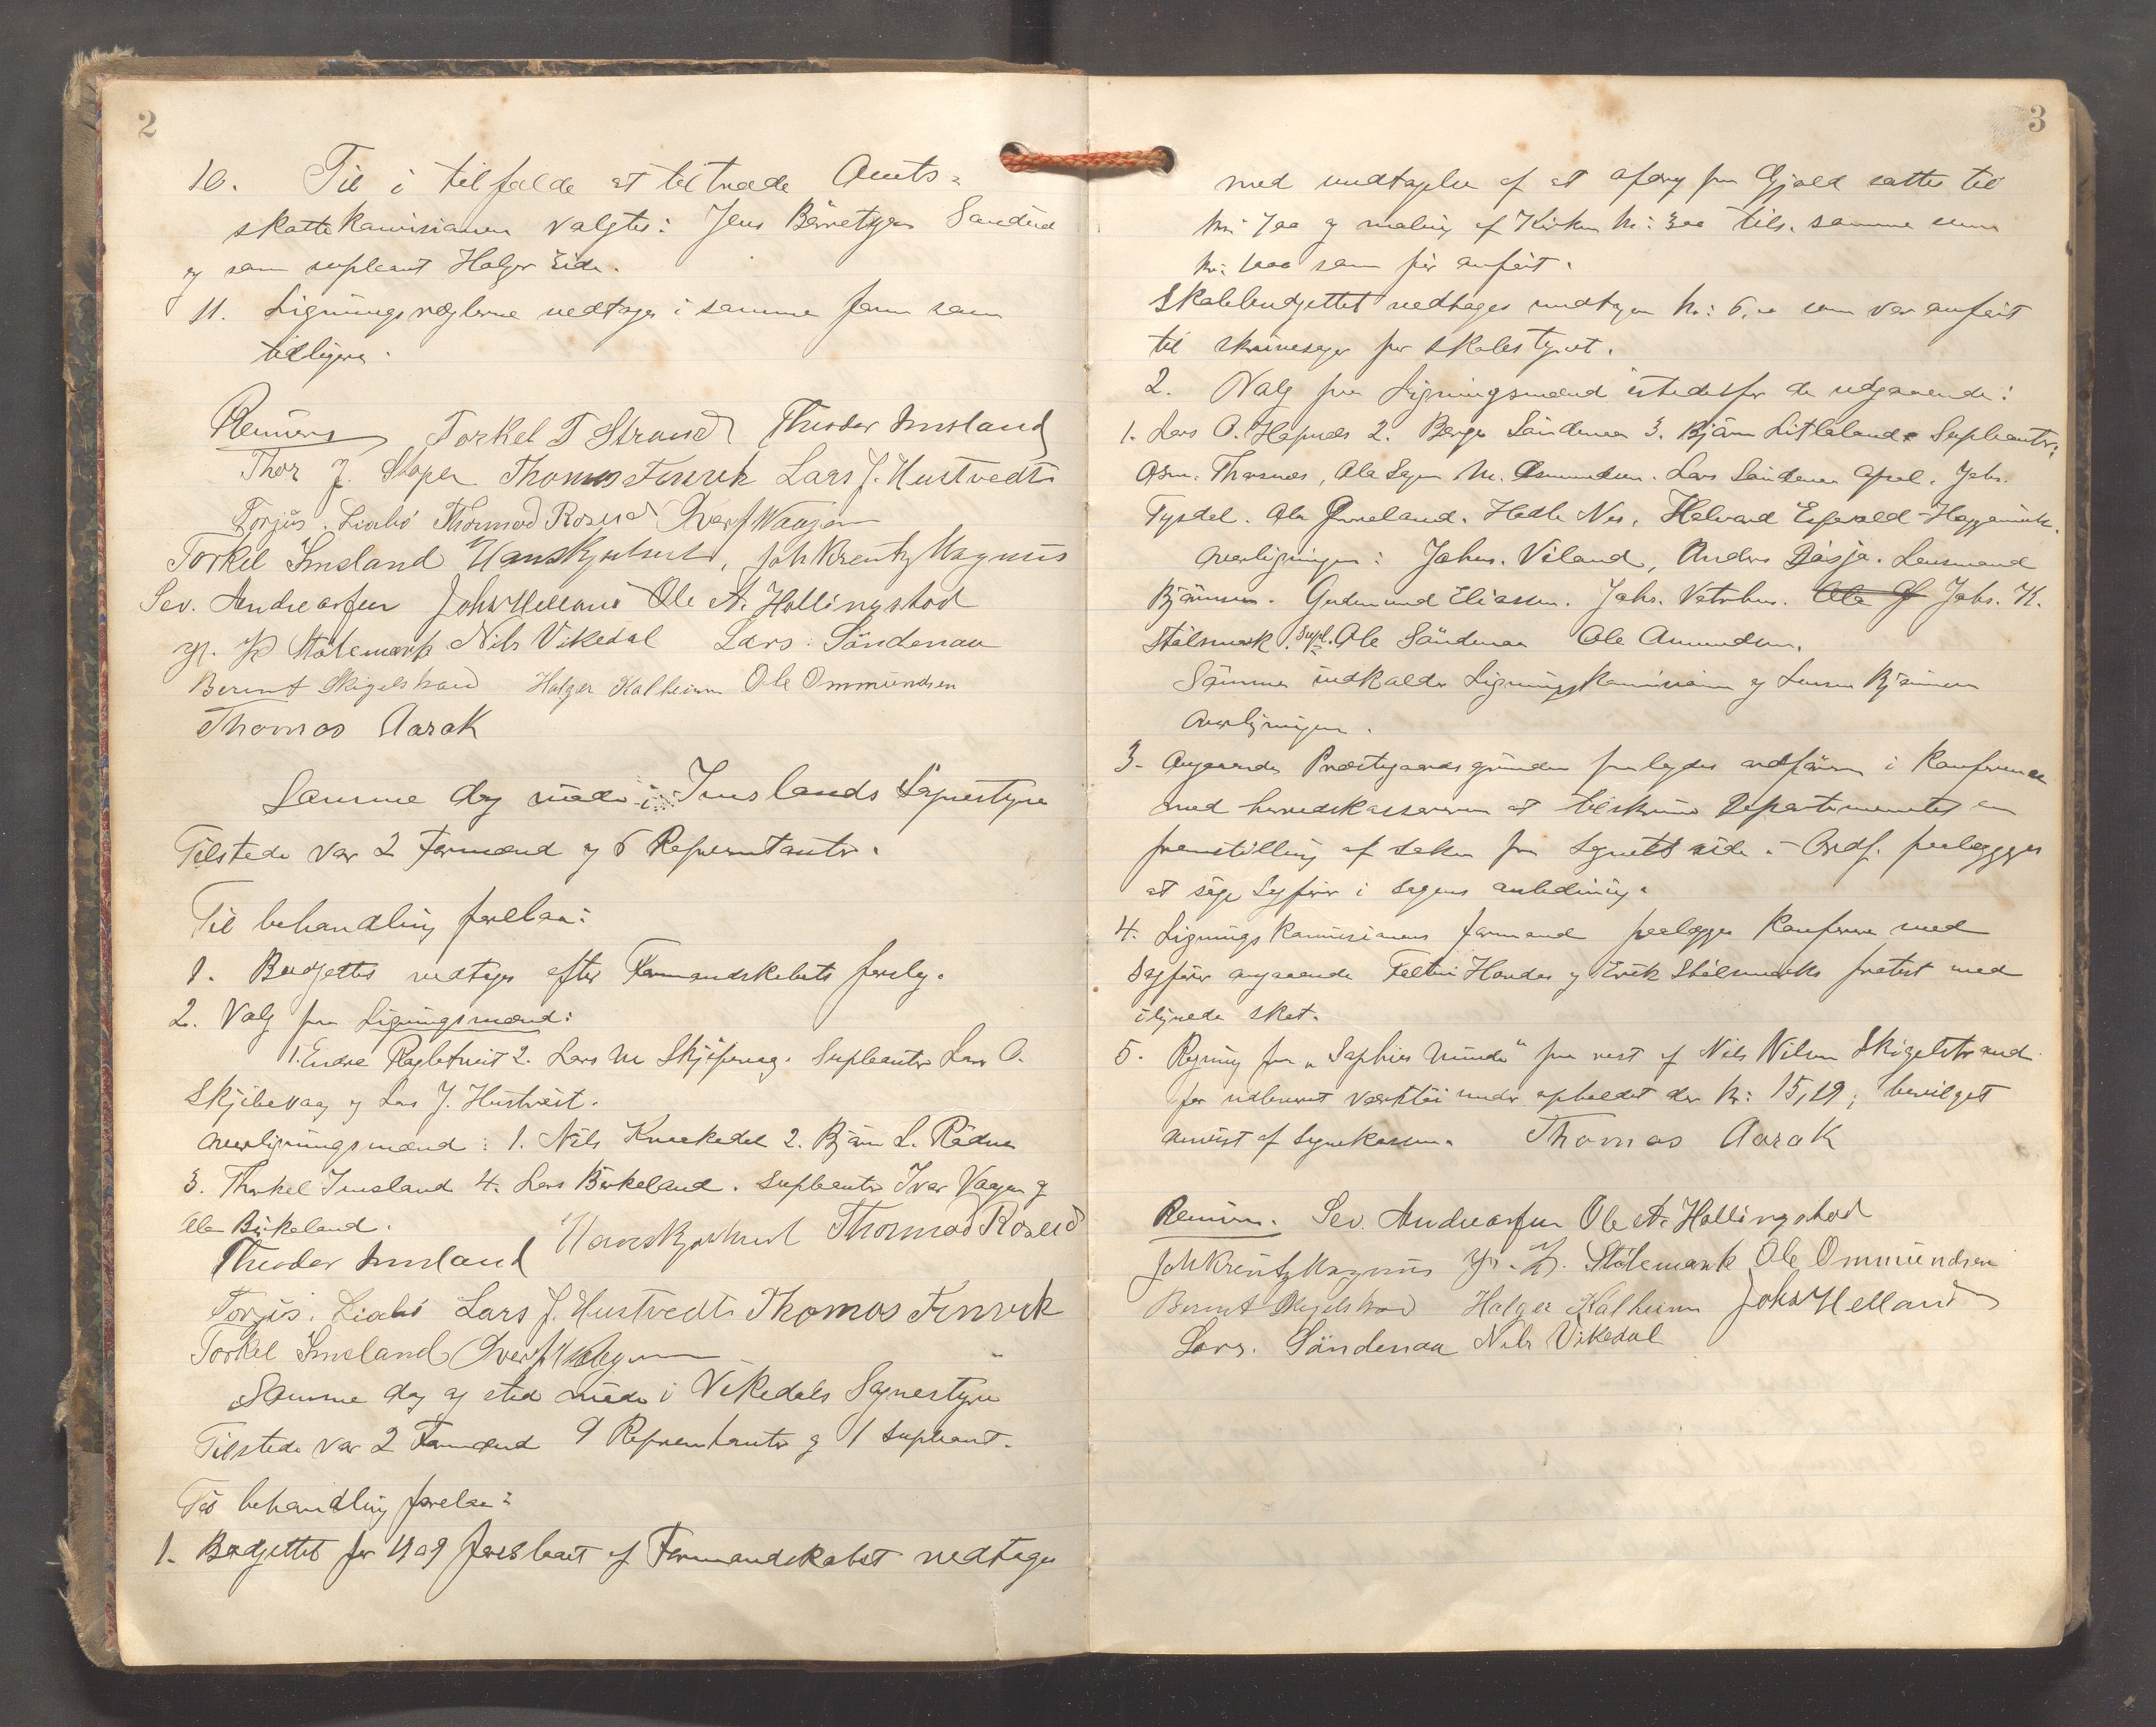 2
10. Til i tilfælde at tiltræde Amts=
skattekamisianen valgtes: Jens Børretzen Sandeid
og sam supleant Halgr Eide.
11. Ligningsræglerne vedtages i samme farm sam
tidligere.
Torkel T Strand Theodor Imsland
Thor J. Thomas Fenvik Lars J. Hustvedt
Torjus. Liabö Thormod Roseid
Torkel Imsland Joh Kreutz Magnus
Sev. Andreassen Johs Helland Ole A. Hallingstad
Stölemark Nils Vikedal Lars. Söndenaa
Berent Skigelstrand Halger Kalheim Ole Ommundsen
Thomas Aarak
Samme dag möde i Imslands Sognestyre
Tilstede var 2 Formænd og 6 Repræsentanter.
Til behandling forelaa:
1. Budjettet vedtages efter Formandskabets forslag.
2. Valg paa Ligningsmænd:
1. Endre 2. Lars M Skjöpevaag. Supleanter Lars O.
Skjibevaag og Lars J. Hustveit.
Averligningsmænd: 1. Nils 2. Bjärn L. Rädne
3. Tharkel Imsland 4. Lars Birkeland. Supleanter Ivar Vaagen og
Ola Birkeland.
Theodor Imsland Thormod Roseid
Torjus. Liabö Lars J. Hustvedt Thomas Fenvik
Torkel Imsland
Samme dag og sted möde i Vikedals Sognestyre
Tilstede var 2 Formænd 9 Repræsentanter og 1 Supleant.
Til behandling forelaa:
1. Budjettet for 1909 foreslaaet af Formandskabet vedtages
3
med undtagelse af at afdrag paa Gjæld sattes til
kr: 700 og maling af Kirken kr: 300 tils. samme sum
kr: 1000 sam för anfört.
Skolebudjettet vedtages undtagen kr: som var anfört
til skrivesager for skolestyret.
2. Valg paa Ligningsmænd istedetfor de udgaaende:
1. Lars O. Hapnes 2. Berge Söndenaa 3. Bjärn Litleland. Supleanter:
Asm. Tharsnes, Ola M. Amundsen. Lars Söndenaa Johs.
Tysdal. Ola Hedle Nes. Halvard
Averligningen: Johs. Viland, Anders Lensmand
Bjärnsen. Gudmund Eliassen. Johs. Vatrhus. Johs. K.
Stölsmark. Supl. Ole Söndenaa Ole Amundsen.
indkalder Ligningskamisianen og Bjärnsen
Averligningen.
3. Angaaende Præstegaardsgrunden paalagdes ordföreren i Kanferense
med herredskassereren at tilskrive Departementet en
fremstilling af saken fra Sognets side. Ordf. paalægges
at söge Sagförer i Sagens anledning.
4. Ligningskamisianens farmand paalægges Kanferere med
Sagförer angaaende Handes og Erik Stölsmarks protest mod
ilignede skat.
5. Regning fra „Saphies Minde" for rest af Nils Nilsen Skigelstrand
for udleveret værktöi under apholdet der kr: 15,19; bevilget
anvist af Sognekassen. Thomas Aarak
Sev. Andreassen Ole A. Hallingstad
Joh Kreutz Magnus Stölemark Ole Ommundsen
Berent Skigelstrand Halger Kalheim Johs Helland
Lars. Söndenaa Nils Vikedal